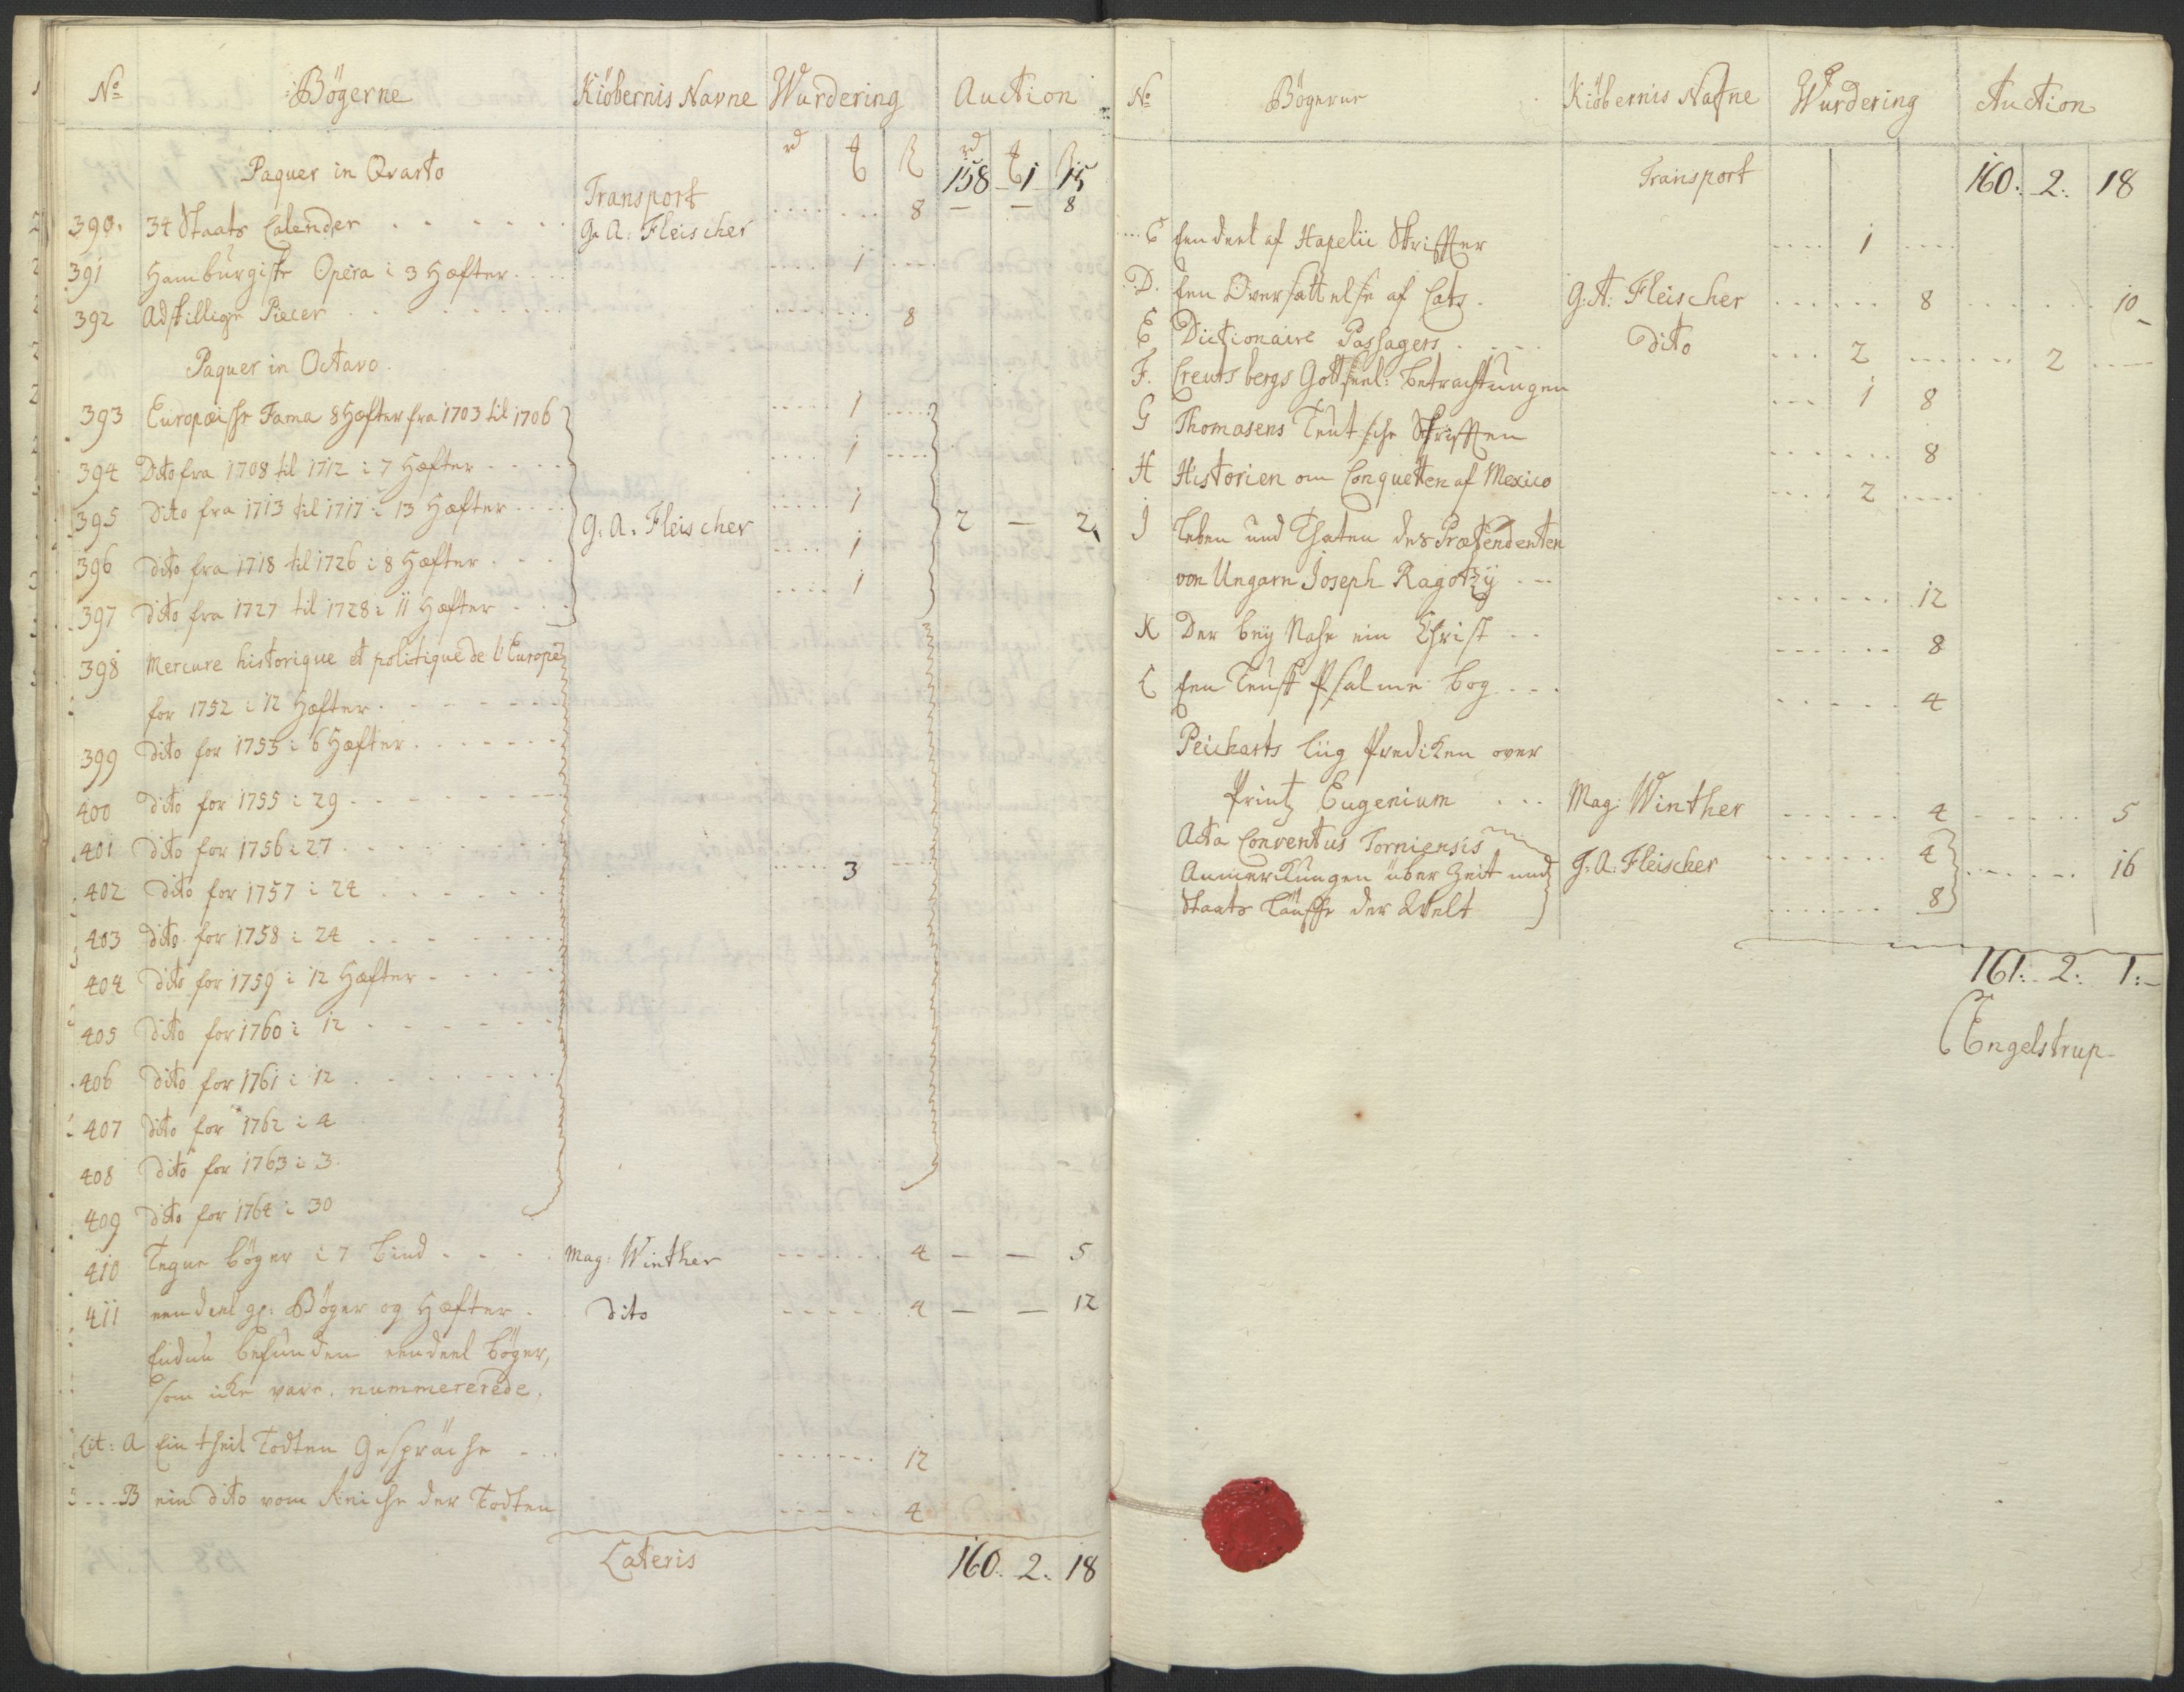 No Bögerne Kiöbernis Navne Wurdering Auction
rd rd
Paquer in Qvarto
Transport 158 1 15
390. 34 Staats Calender G: A: Fleischer 8 — — 8
391 Hamburgiske Opera i 3 Hæfter 1
392 Adskillige Piecer 8
Paquer in Octavo
393 Europæische Fama 8 Hæfter fra 1703 til 1706 1
394 Dito fra 1708 til 1712 i 7 Hæfter 1
395 Dito fra 1713 til 1717 i 13 Hæfter 1
G: A. Fleischer 2 — 2
396 Dito fra 1718 til 1726 i 8 Hæfter 1
397 Dito fra 1727 til 1728 i 11 Hæfter 1
398 Mercure historique et politique de l'Europe
for 1752 i 12 Hæfter
399 Dito for 1755 i 6 Hæfter
400 Dito for 1755 i 29
401 Dito for 1756 i 27
3
402 Dito for 1757 i 24
403 Dito for 1758 i 24
404 Dito for 1759 i 12 Hæfter
405 Dito for 1760 i 12
406 Dito for 1761 i 12
407 Dito for 1762 i 4
408 Dito for 1763 i 3.
409 Dito for 1764 i 30
410 Tegne böger i 7 bind Mag: Winther 4 — — 5
411 een deel gl: Böger og Hæfter Dito 4 — — 12
Endnu befunden een deel böger,
som icke vare nummererede.
Lit: A Ein theil Todten Gespräche 12
B ein dito vom Reiche der Todten 4
Lateris 160. 2. 18
No Bögerne Kiöbernis Nafne Wurdering Auction
Transport 160. 2. 18
C Een deel af Hapelii Skriffter 1
D. Een Oversættelse af Cats. G: A: Fleischer 8 10
E Dictionaire Passagers Dito 2 2
F. Creutsbergs Gottseel: betrachtungen 1 8
G Thomasens Teutsche Schrifften 8
H Historien om Conquetten af Mexico 2
I Leben und Thaten des Prætendenten
von Ungarn Joseph Ragotzÿ 12
K Der beÿ Nahe ein Christ 8
L Een Teusk Psalme bog 4
Peicharts liig Prediken over
Printz Eugenium Mag: Winther 4 5
Acta Conventus Torniensis 4
Anmerckungen über Zeit und G: A: Fleischer 16
Staats Läuffe der Welt 8
161: 2: 1:
Engelstrup